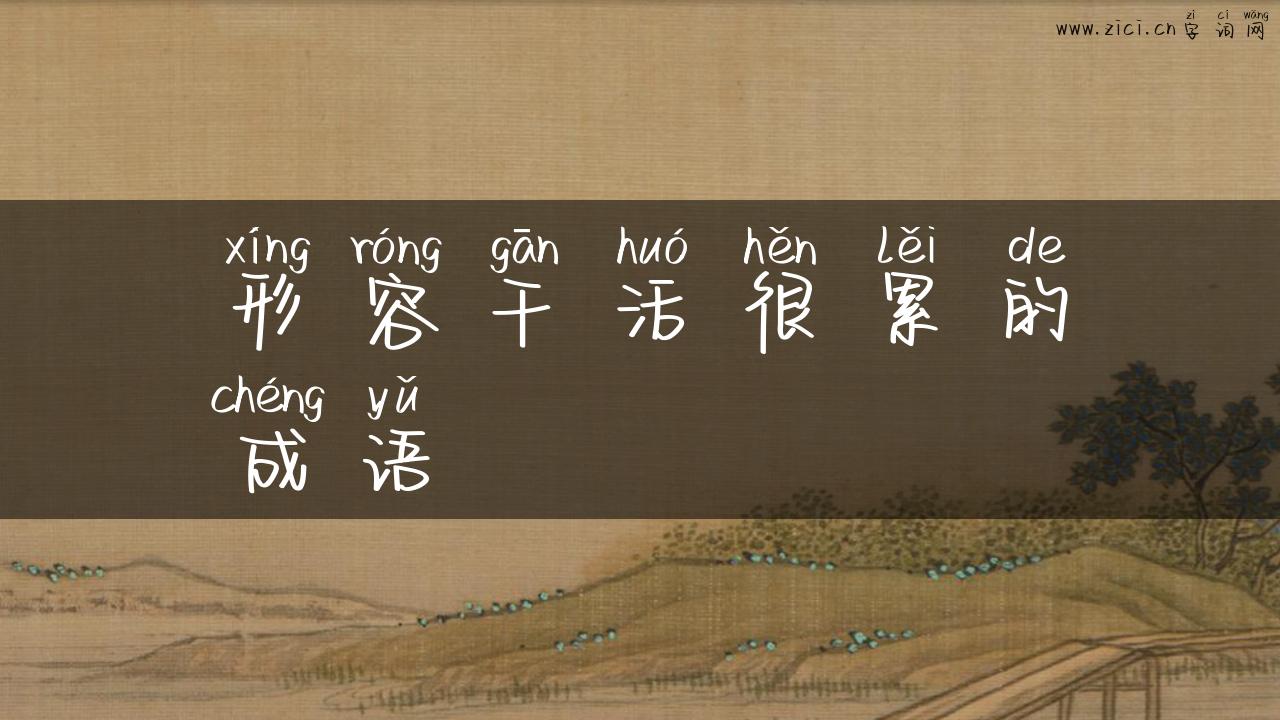 zì cí wǎng
www.zici.cn 字词网
xíng róng gān huó hěn lěi de
形容干活很累的
chéng yǔ
成语